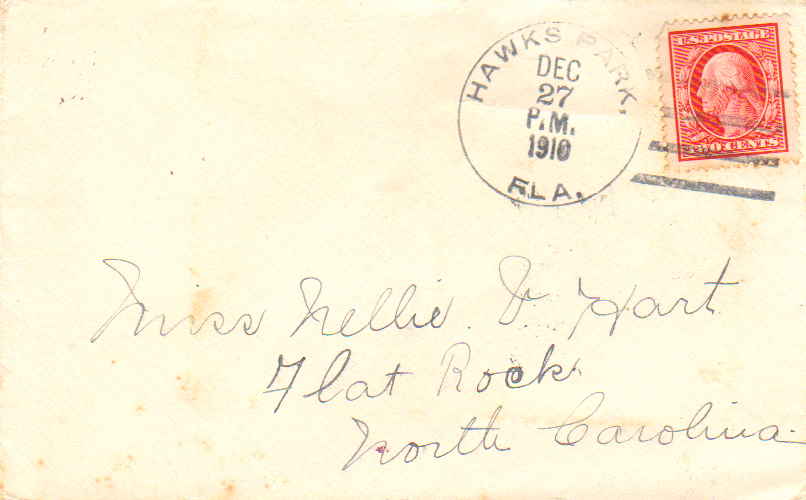 HAWKS PARK,
DEC
27
P.M.
1910
FLA.
U.S. POSTAGE
TWO CENTS
Miss Nellie D Hart
Flat Rock
North Carolina